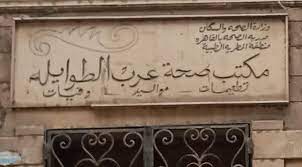 وزارة الصحة والسكان
مديرية الصحة بالقاهرة
منطقة المطرية الطبية
مكتب صحة عرب الطوايله
تطعيمات - مواليد - وفيات